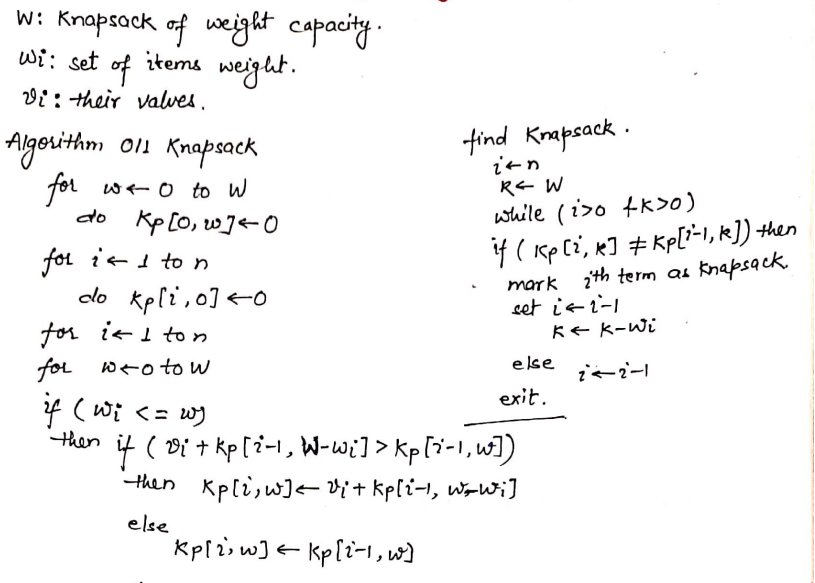 W: Knapsack of weight capacity.
wi: set of items weight.
vi: their values.
Algorithm 0/1 Knapsack
for w ← 0 to W
do Kp[0, w] ← 0
for i ← 1 to n
do Kp[i, 0] ← 0
for i ← 1 to n
for w ← 0 to W
if (wi <= w)
then if (vi + Kp[i-1, W-wi] > Kp[i-1, w])
then Kp[i, w] ← vi + Kp[i-1, w-wi]
else
Kp[i, w] ← Kp[i-1, w]
find Knapsack.
i ← n
K ← W
while (i>0 & K>0)
if (Kp[i, k] ≠ Kp[i-1, k]) then
mark ith term as Knapsack
set i ← i-1
K ← K-wi
else
i ← i-1
exit.